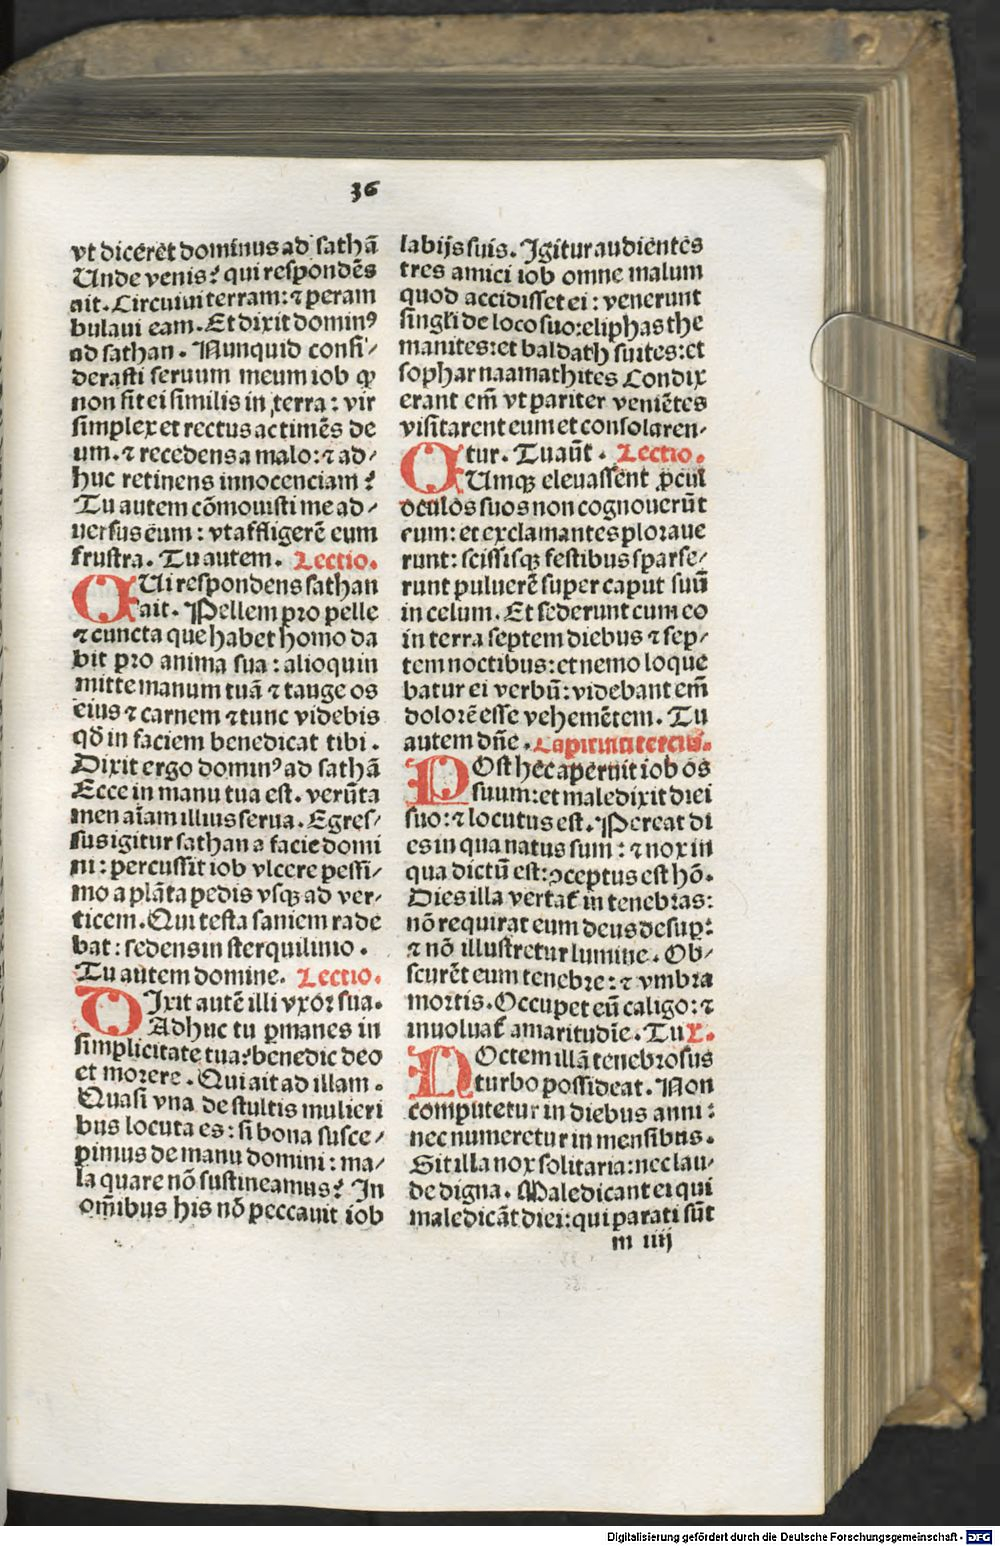 36
vt diceret dominus ad sathã
Unde venis? qui respondẽs
ait. Circuiui terram: ⁊ peram
bulaui eam. Et dixit dominꝰ
ad sathan. Nunquid consi⸗
derasti seruum meum iob ꝙ
non sit ei similis in terra: vir
simplex et rectus ac timẽs de
um. ⁊ recedens a malo: ⁊ ad⸗
huc retinens innocenciam?
Tu autem cõmouisti me ad⸗
uersus eum: vt affligerẽ eum
frustra. Tu autem. Lectio.
QUi respondens sathan
ait. Pellem pro pelle
⁊ cuncta que habet homo da
bit pro anima sua: alioquin
mitte manum tuã ⁊ tange os
eius ⁊ carnem ⁊ tunc videbis
qđ in faciem benedicat tibi.
Dixit ergo dominꝰ ad sathã
Ecce in manu tua est. verũta
men aĩam illius serua. Egres⸗
sus igitur sathan a facie domi
ni: percussit iob vlcere pessi⸗
mo a plãta pedis vsqꝫ ad ver⸗
ticem. Qui testa saniem rade
bat: sedens in sterquilinio.
Tu autem domine. Lectio.
DIxit autẽ illi vxor sua.
Adhuc tu ꝑmanes in
simplicitate tua? benedic deo
et morere. Qui ait ad illam.
Quasi vna de stultis mulieri
bus locuta es: si bona susce⸗
pimus de manu domini: ma⸗
la quare nõ sustineamus? In
om̃ibus his nõ peccauit iob
labijs suis. Igitur audientes
tres amici iob omne malum
quod accidisset ei: venerunt
singĺi de loco suo: eliphas the
manites: et baldath suites: et
sophar naamathites Condix
erant em̃ vt pariter veniẽtes
visitarent eum et consolaren⸗
tur. Tu aũt. Lectio.
CUmqꝫ eleuassent ꝓcul
oculos suos non cognouerũt
eum: et exclamantes ploraue
runt: scissisqꝫ festibus sparse⸗
runt puluerẽ super caput suũ
in celum. Et sederunt cum eo
in terra septem diebus ⁊ sep⸗
tem noctibus: et nemo loque
batur ei verbũ: videbant em̃
dolorẽ esse vehemẽtem. Tu
autem dñe. Capitulũ terciũ.
POst hec aperuit iob os
suum: et maledixit diei
suo: ⁊ locutus est. Pereat di
es in qua natus sum: ⁊ nox in
qua dictũ est: ꝯceptus est hõ.
Dies illa vertať in tenebras:
nõ requirat eum deus desuꝑ:
⁊ nõ illustretur lumine. Ob⸗
scurẽt eum tenebre: ⁊ vmbra
mortis. Occupet eũ caligo: ⁊
inuoluať amaritudĩe. Tu X.
NOctem illã tenebrosus
turbo possideat. Non
computetur in diebus anni:
nec numeretur in mensibus.
Sit illa nox solitaria: nec lau⸗
de digna. Maledicant ei qui
maledicãt diei: qui parati sũt
m iiij
Digitalisierung gefördert durch die Deutsche Forschungsgemeinschaft - DFG